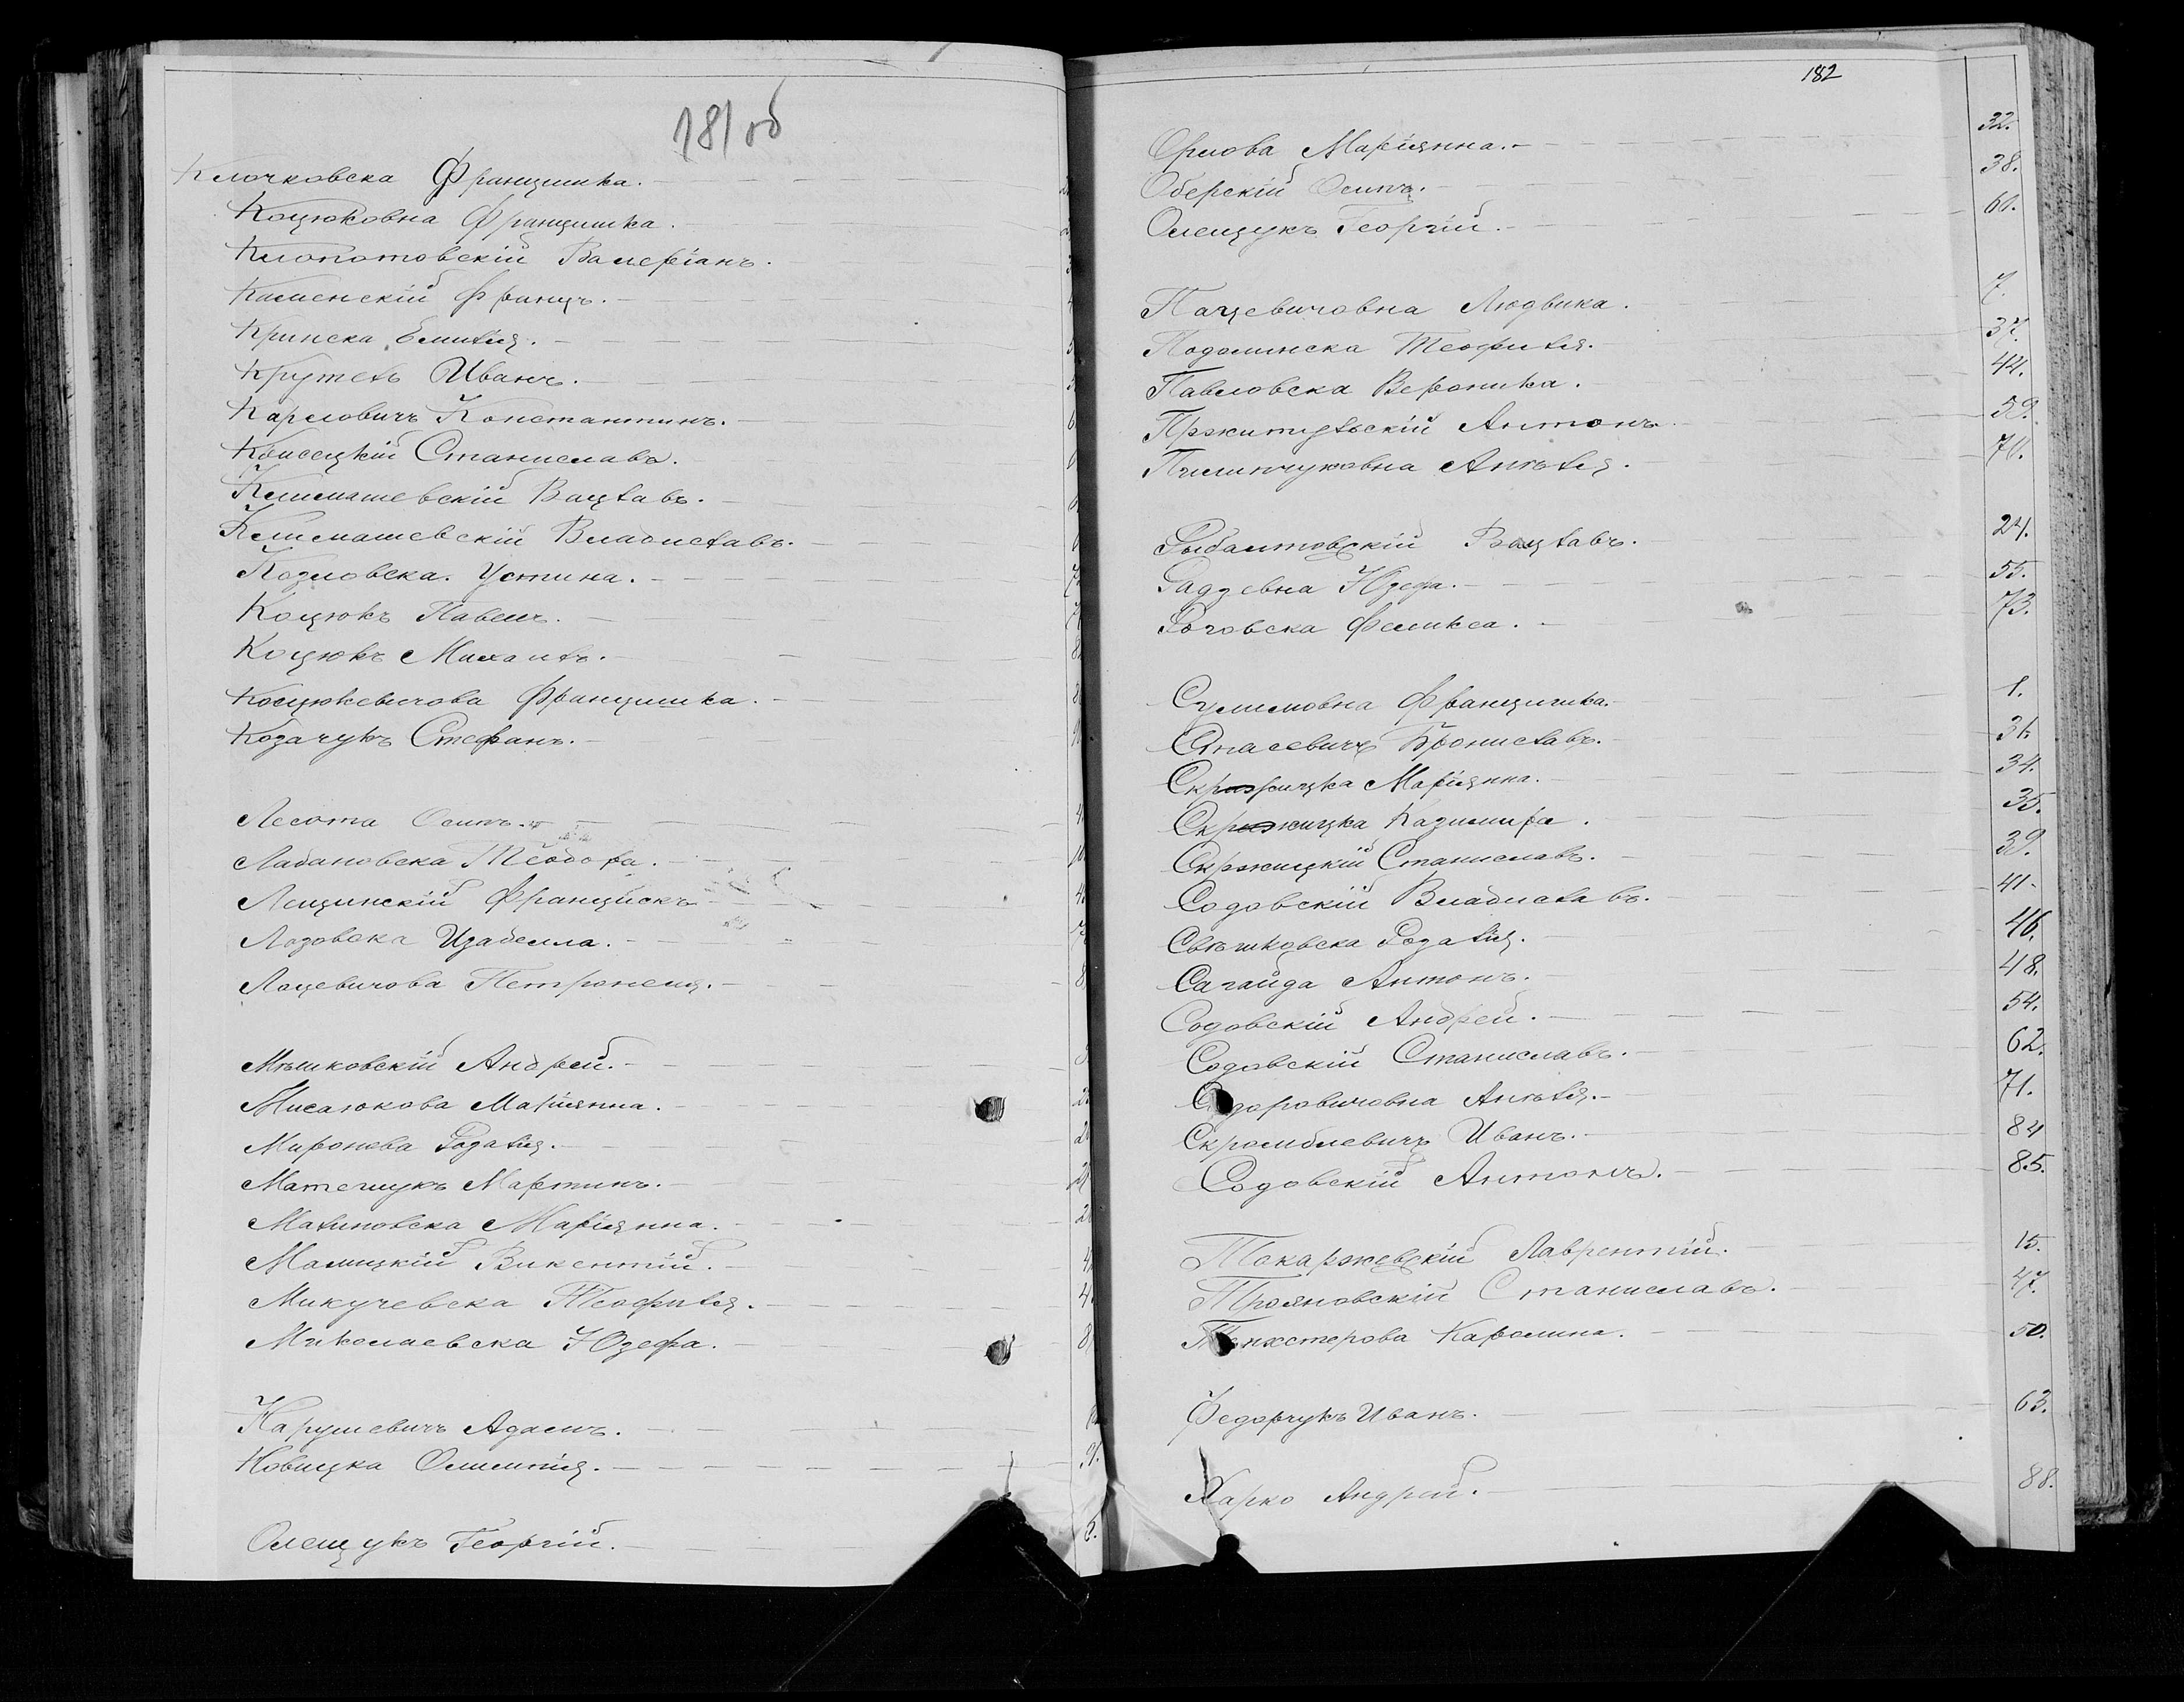 181 об
Клочковска Францишка.
Коцюковна Францишка.
Клопотовскій Валеріанъ.
Каменскій Францъ.
Крипска Емилія.
Крутель Иванъ.
Карловичъ Константинъ.
Станиславъ.
Климашевскій Вацлавъ.
Климашевскій Владиславъ.
Козловска Устина.
Коцюкъ Павелъ.
Коцюкъ Михаилъ.
Коцюкевичова Францишка.
Козачукъ Стефанъ.
Лесота Осипъ.
Лабановска Теодора.
Лещинскій Францискъ
Лазовска Изабелла.
Лацевичова Петронеля.
Мѣшковскій Андрей.
Мисаюкова Маріянна.
Миронова Розалія.
Матещукъ Мартинъ.
Малиновска Маріянна.
Малицкій Викентій.
Микучевска Теофиля.
Миколаевска Юзефа.
Нарушевичъ Адамъ.
Новицка Олимпія.
Олещукъ Георгій.
182
Орлова Маріянна. 32.
Оберскій Осипъ. 38.
Олещукъ Георгій. 60.
Пацевичовна Людвика. 7.
Подолинска Теофиля. 37.
Павловска Вероника. 44.
Пржитульскій Антонъ. 59.
Пилипчуковна Анѣля. 70.
Рыбалтовскій Вацлавъ. 24.
Радзевна Юзефа. 55.
Роговска Феликса. 73.
Сулимовна Францишка. 1.
Стасевичъ Брониславъ. 31.
Маріянна. 34.
Казимира. 35.
Скржицкій Станиславъ. 39.
Содовскій Владиславъ. 41.
Свѣшковска Розалія. 46.
Сагайда Антонъ. 48.
Содовскій Андрей. 54.
Содовскій Станиславъ. 62.
Сидоровичовна Анѣля. 71.
Скромблевичъ Иванъ. 84
Содовскій Антонъ. 85.
Токаржевскій Лаврентій. 15.
Трояновскій Станиславъ. 47.
Каролина. 50.
Федорчукъ Иванъ. 63.
Харко Андрей. 88.